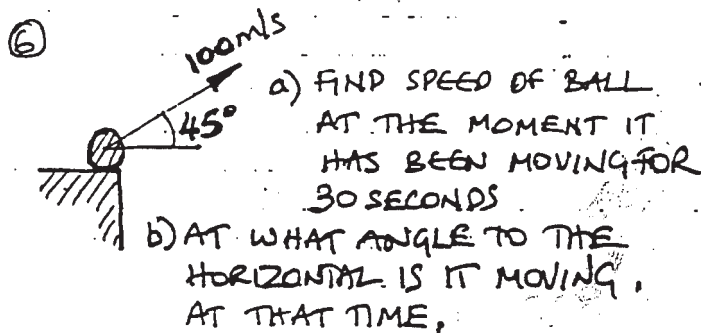 ⑥
100m/s
45°
a) FIND SPEED OF BALL
AT THE MOMENT IT
HAS BEEN MOVING FOR
30 SECONDS
b) AT WHAT ANGLE TO THE
HORIZONTAL IS IT MOVING,
AT THAT TIME,